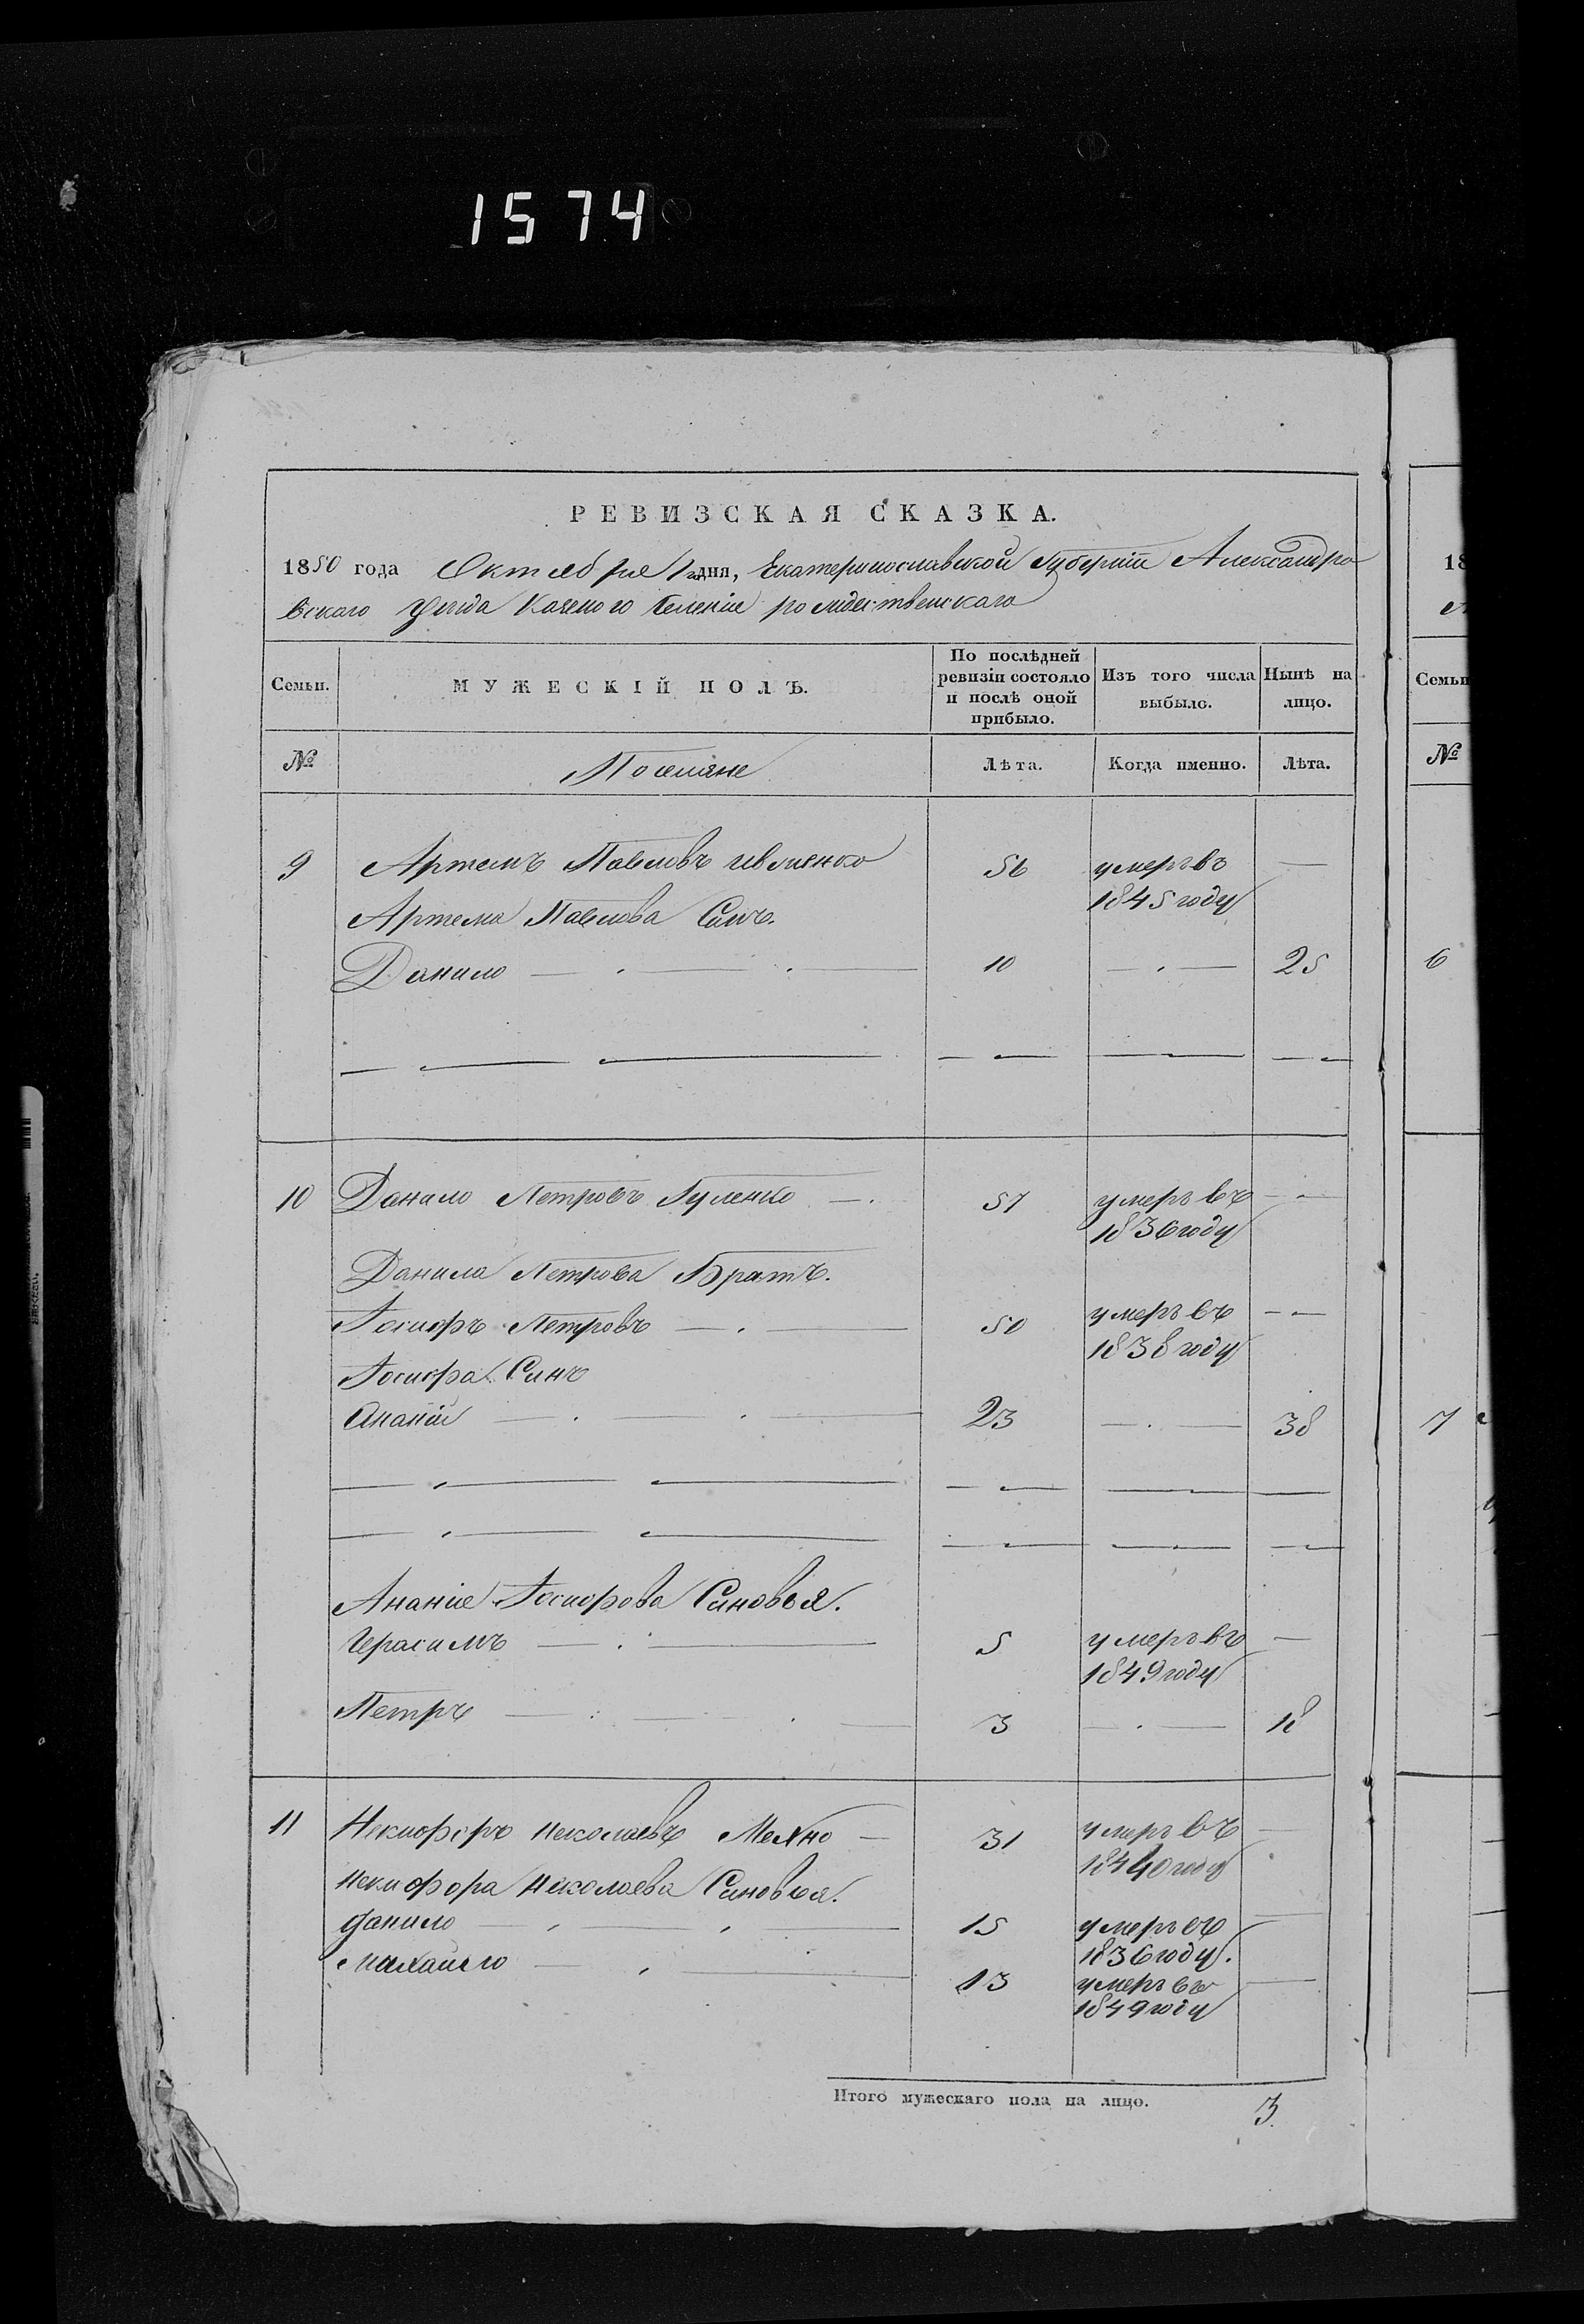 1574
РЕВИЗСКАЯ СКАЗКА.
1850 года Октября 1 дня, Екатеринославской Губерніи Александро
вскаго уѣзда Казеного Селенія рождественскаго
Семьи.
МУЖЕСКІЙ ПОЛЪ.
По послѣдней ревизіи состояло и послѣ оной прибыло.
Изъ того числа выбыло.
Нынѣ на лицо.
№ Поселяне Лѣта. Когда именно. Лѣта.
9 Артемъ Павловъ 56 умеръ въ —
1845 году
Артема Павлова Синъ.
Данило — 10 — 25
10 Данило Петровъ Гуленко — 57 умеръ въ —
1836 году
Данила Петрова Братъ.
Іосифъ Петровъ — 50 умеръ въ —
1838 году
Іосифа Синъ
Ананій — 23 — 38
Ананія Іосифова Синовья.
Герасимъ — 5 умеръ въ —
1849 году
Петръ — 3 — 18
11 Некифоръ Николаевъ Махно — 31 умеръ въ —
1840 году
Некифора Николаева Синовья.
Данило — 15 умеръ въ —
1836 году.
Михайло — 13 умеръ въ —
1849 году
Итого мужескаго пола на лицо. 3.
18
Семьи
№
6
7